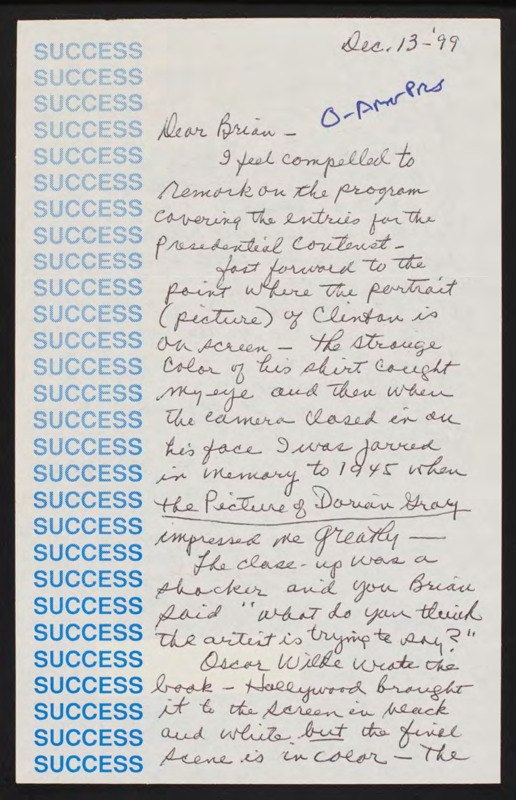 Dec. 13-'99
O-AmPrs
Dear Brian -
I feel compelled to
remark on the program
covering the entries for the
Presedential Contenst -
fast forward to the
point where the portrait
(picture) of Clinton is
on screen - the strange
color of his shirt caught
my eye and then when
the camera closed in on
his face I was jarred
in memory to 1945 when
the Picture of Dorian Gray
impressed me greatly -
The close-up was a
shocker and you Brian
said "what do you think
the artist is trying to say?"
Oscar Wilde wrote the
book - Hollywood brought
it to the screen in black
and white but the final
scene is in color - The
SUCCESS
SUCCESS
SUCCESS
SUCCESS
SUCCESS
SUCCESS
SUCCESS
SUCCESS
SUCCESS
SUCCESS
SUCCESS
SUCCESS
SUCCESS
SUCCESS
SUCCESS
SUCCESS
SUCCESS
SUCCESS
SUCCESS
SUCCESS
SUCCESS
SUCCESS
SUCCESS
SUCCESS
SUCCESS
SUCCESS
SUCCESS
SUCCESS